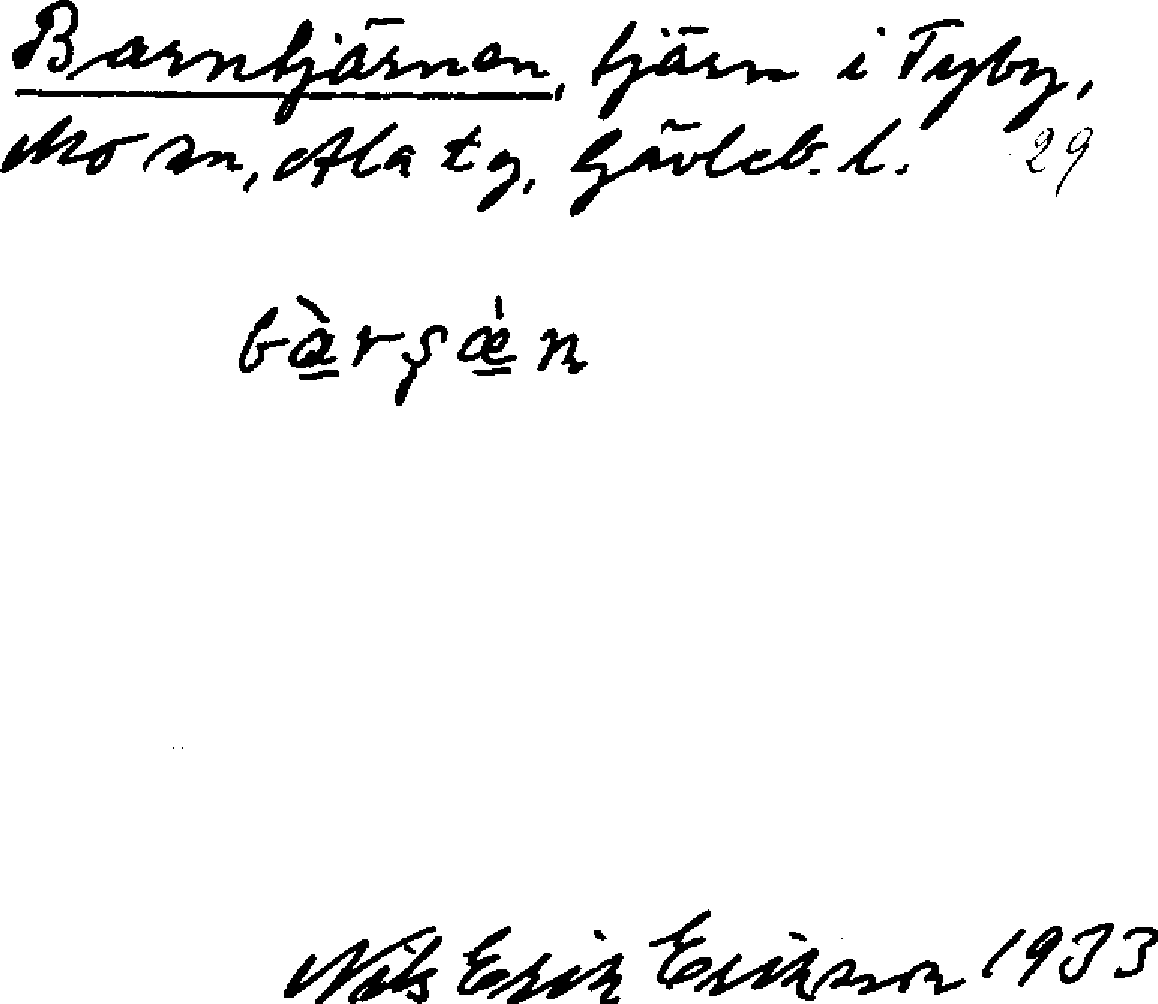 Barntjärnen, tjärn i Tyby,
Mo sn, Ala tg, Gävleb. l. 29
bàrşǽn
Nils Erik Erikson 1933